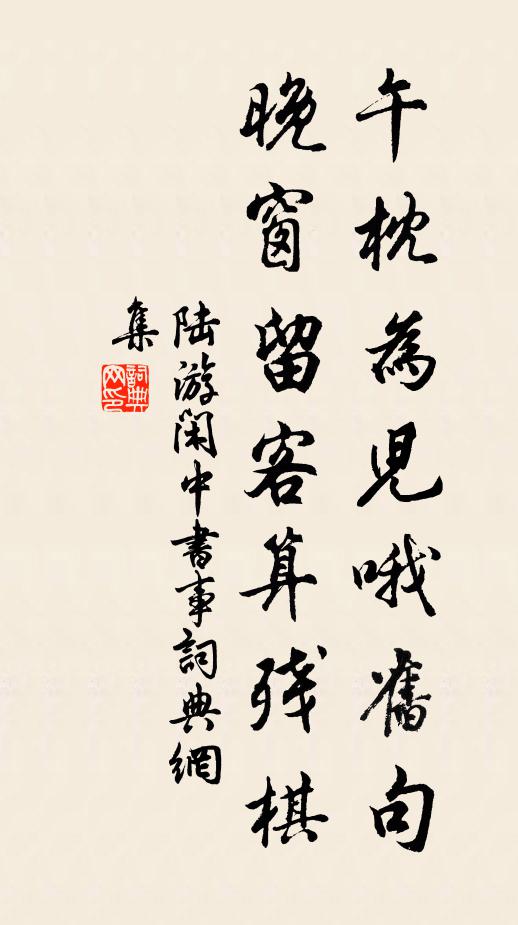 午枕為兒哦舊句
晚窗留客算残棋
陆游闲中書事詞典網
集
詞典
网印